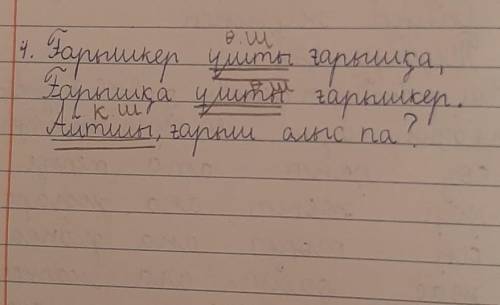 ө.ш
4. Ғарышкер ұшты ғарышқа,
Ғарышқа ұшты ғарышкер.
к ш
Айтшы, ғарыш алыс па?